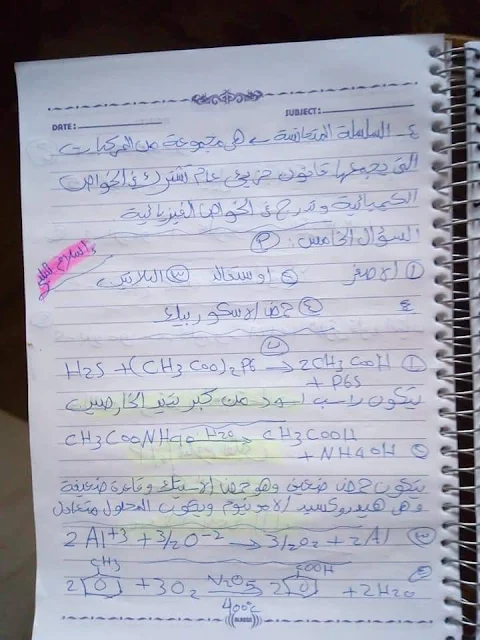 DATE: SUBJECT:
٤ - السلسلة المتجانسة ← هي مجموعة من المركبات
التي يجمعها قانون جزيئي عام تشترك في الخواص
الكيميائية وتتدرج في الخواص الفيزيائية
السؤال الخامس: P
① الأصغر ② أوستفالد ③ البلاتين
٤ حمض الاسكوربيك
ب
① H2S + (CH3COO)2Pb → 2CH3COOH
+ PbS
يتكون راسب اسود من كبريتيد الخارصين
CH3COONH4 H2O → CH3COOH
② + NH4OH
يتكون حمض ضعيف وهو حمض الاستيك وقاعدة ضعيفة
وهي هيدروكسيد الامونيوم ويكون المحلول متعادل
③ 2Al+3 + 3/2 O-2 → 3/2 O2 + 2Al
CH3 COOH
2 + 3O2 V2O5 → 2 + 2H2O
400°C